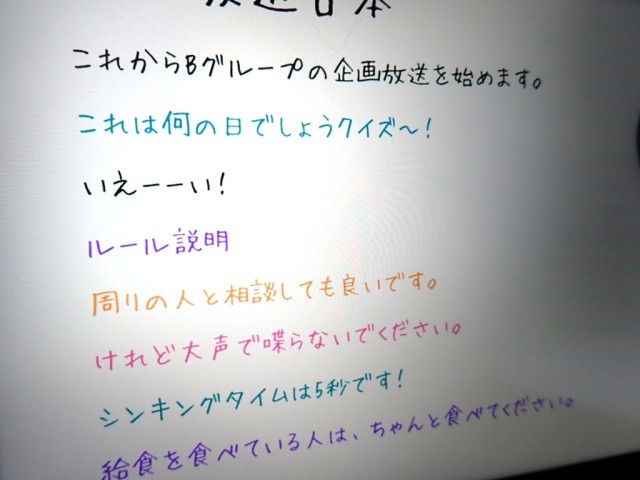 これからBグループの企画放送を始めます。
これは何の日でしょうクイズ〜!
いえーーい!
ルール説明
周りの人と相談しても良いです。
けれど大声で喋らないでください。
シンキングタイムは5秒です!
給食を食べている人は、ちゃんと食べてください。